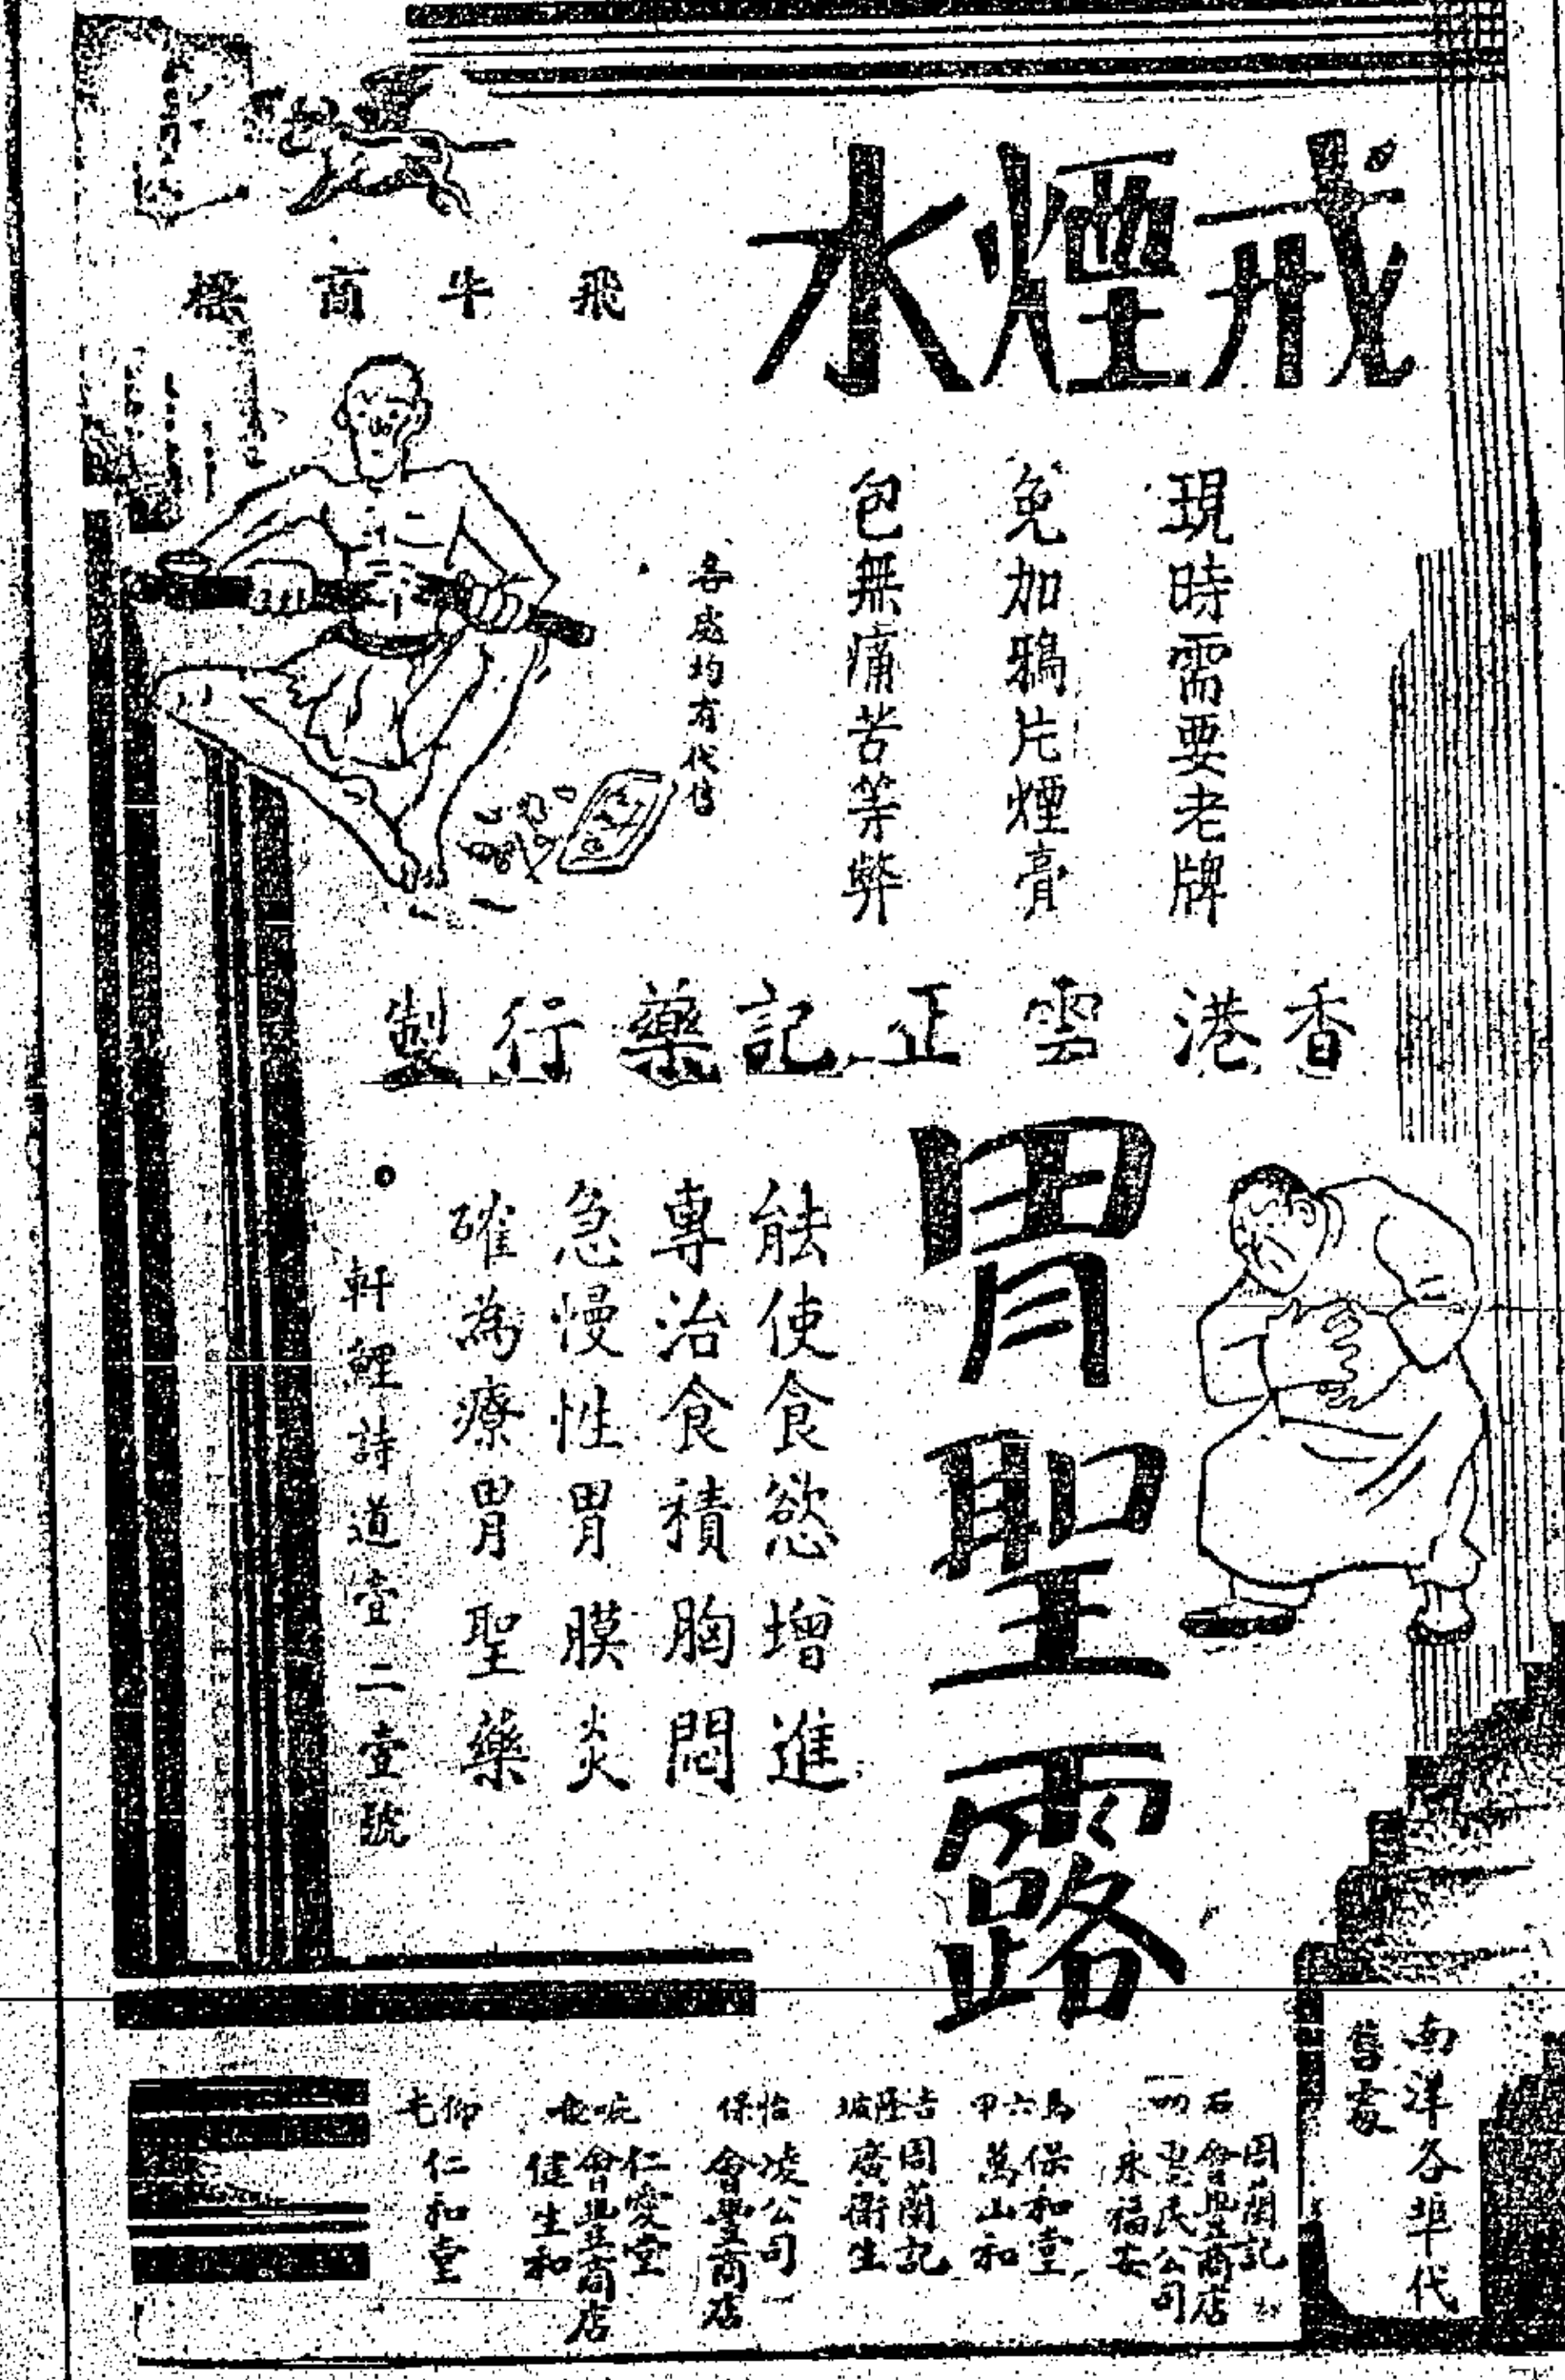 戒煙水
飛牛商標
現時需要老牌
免加鴉片煙膏
包無痛苦等弊
各處均有代售
香港雲正記藥行製
胃聖露
能使食慾增進
專治食積胸悶
急慢性胃膜炎
確為療胃聖藥
軒鯉詩道壹二壹號
南洋各埠代
售處
石叻
周蘭記
會豐商店
惠民公司
永福安
馬六甲
保和堂
萬山和
吉隆坡
周蘭記
廣衛生
怡保
凌公司
會豐商店
庇能
仁愛堂
會豐商店
健生和
仰光
仁和堂